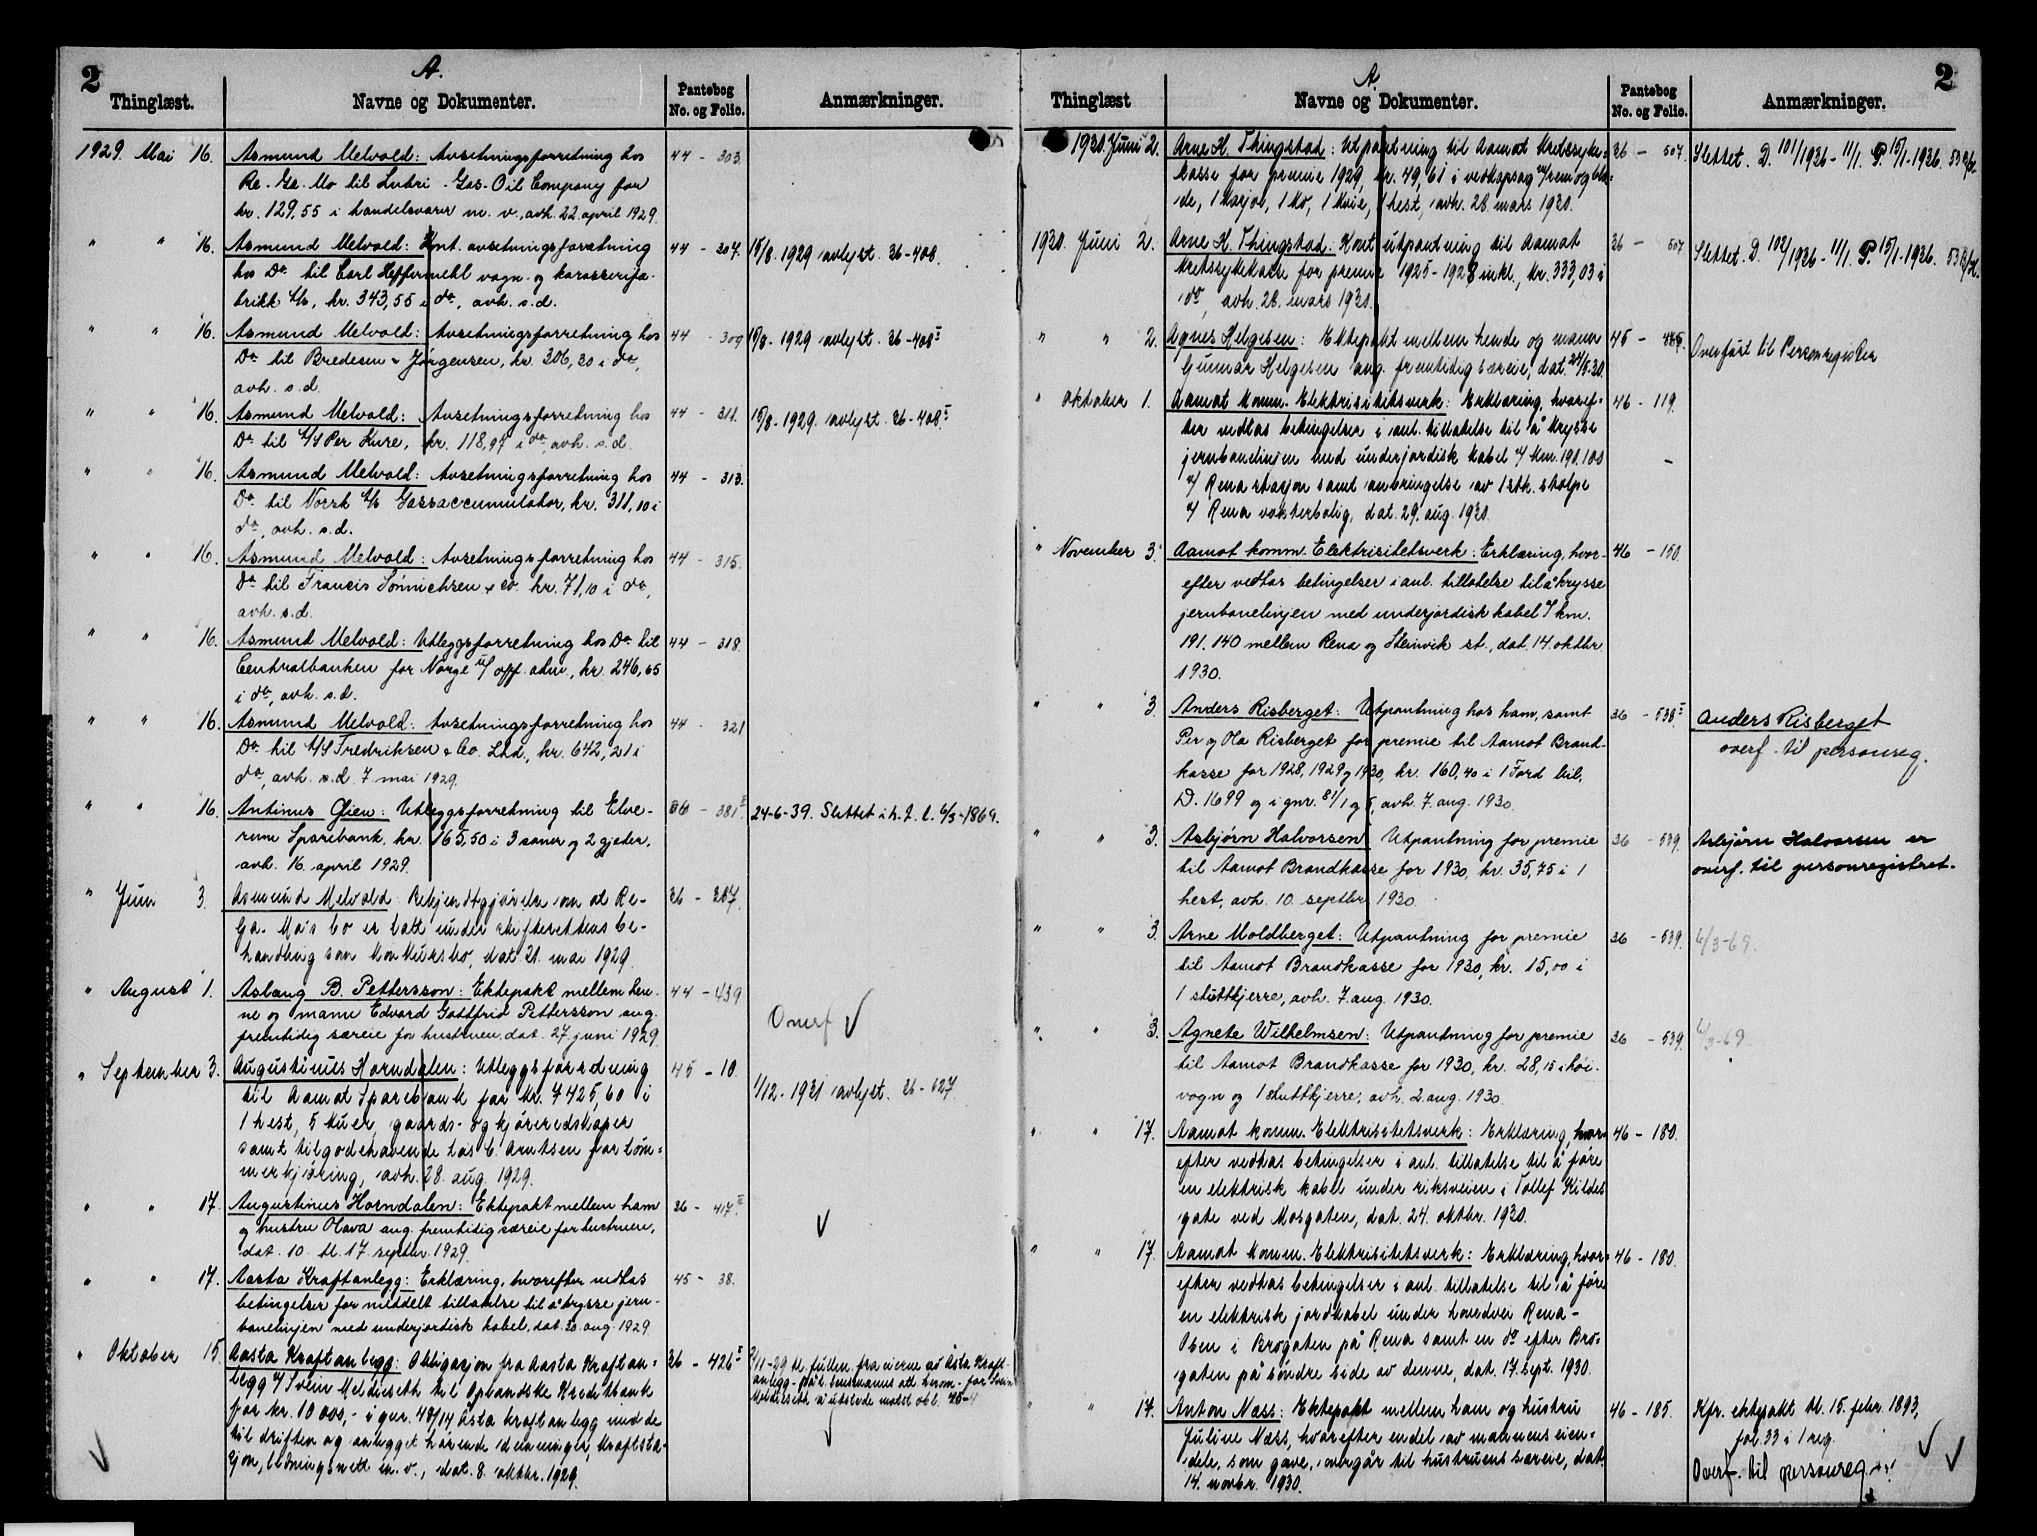 2
A.
Thinglæst.
Navne og Dokumenter.
Pantebog
No. og Folio.
Anmærkninger.
1929. Mai 16. Asmund Melvold: Avsetningsforretning hos 44 - 303.
Re-Ga-Mo til Lubri-Gas-Oil Company for
kr. 129,55 i handelsvarer m. v., avh. 22 april 1929.
" " 16. Asmund Melvold: Kont. avsetningsforretning 44 - 307. 15/8. 1929 avlyst. 36-408.
hos Do til Carl Heffermehl vogn- og karosserifa-
brikk A/S, kr. 343,55 i do, avh. s.d.
" " 16. Asmund Melvold: Avsetningsforretning hos 44 - 309 15/8. 1929 avlyst 36-408I
Do til Bredesen & Jørgensen, kr. 306,30 i do,
avh. s.d.
" " 16. Asmund Melvold: Avsetningsforretning hos 44 - 311. 15/8. 1929. avlyst. 36-408I
Do til A/S Per Kure, kr. 118,97 i do, avh. s.d.
" " 16. Asmund Melvold: Avsetningsforretning hos 44 - 313.
Do til Norsk A/S Gassaccumulator, kr. 311,10 i
do, avh. s.d.
" " 16. Asmund Melvold: Avsetningsforretning hos 44 - 315.
Do til Francis Sønnichsen & Co. kr. 71,10 i do,
avh. s.d.
" " 16. Asmund Melvold: Utleggsforretning hos Do til 44 - 318.
Centralbanken for Norge u/ off. adm., kr. 246,65
i do, avh. s.d.
" " 16. Asmund Melvold: Avsetningsforretning hos 44 - 321
Do til A/S Fredriksen & Co. Ltd., kr. 642,21 i
do, avh. s.d. 7 mai 1929.
" " 16. Antinus Øien: Utleggsforretning til Elve- 36 - 381II 24-6-39. Slettet i h. t. l. 6/3-1869.
rum Sparebank, kr. 165,50 i 3 sauer og 2 gjeder,
avh. 16. april 1929.
" Juni 3. Asmund Melvold: Bekjentgjørelse om at Re- 36 - 387.
Ga-Mo's bo er tatt under skifterettens be-
handling som konkursbo, dat. 31. mai 1929.
" August 1. Aslaug B. Pettersson: Ektepakt mellem hen- 44 - 439
ne og mann Edvard Gottfrid Pettersson ang.
fremtidig særeie for hustruen, dat. 27 juni 1929
Overf ✓
" September 3. Augustinus Horndalen: Utleggsforretning 45 - 10. 1/12 - 1931 avlyst. 36-627.
til Aamot Sparebank for kr. 7425,60 i
1 hest, 5 kuer, gaards- og kjøreredskaper
samt tilgodehavende hos C. Arntsen for tøm-
merkjøring, avh. 28. aug. 1929.
" " 17. Augustinus Horndalen: Ektepakt mellem ham 36 - 417II ✓
og hustru Olava ang. fremtidig særeie for hustruen,
dat. 10. tl. 17. septbr. 1929.
" " 17. Aasta Kraftanlegg: Erklæring, hvorefter vedtas 45 - 38.
betingelser for meddelt tillatelse til å krysse jern-
banelinjen med underjordisk kabel, dat. 20. aug. 1929
" Oktober 15. Aasta Kraftanlegg: Obligasjon fra Aasta Kraftan- 36 - 426I 2/11-29 tl. fullm. fra eierne av Åsta Kraft-
legg v/ Svein Meldieseth til Oplandske Kreditbank anlegg - på l. lensmanns att. herom - for Svein
for kr. 10 000,- i gnr. 48/14 Åsta kraftanlegg med de Meldieseth å utstede nevnte obl. 45-
til driften og anlegget hørende eiendommer, kraftsta- ✓
sjon, ledningsnett m. v., dat. 8. oktbr. 1929.
✓
A.
2
Thinglæst
Navne og Dokumenter.
Pantebog
No. og Folio.
Anmærkninger.
1930. Juni 2. Arne H. Thingstad: Utpantning til Aamot Kretssyke- 36 - 507. Slettet. D. 101/1936 - 11/1. P. 15/1-1936.
kasse for premie 1929, kr. 49,61 i vedkapsag m/rem og bla-
de, 1 kvie, 1 ko, 1 kvie, 1 hest, avh. 28. mars 1930.
1930. Juni 2. Arne H. Thingstad: Kont utpantning til Aamot 36 - 507 Slettet. D. 102/1936 - 11/1. P. 15/1-1936.
Kretssykekasse for premie 1925-1928 inkl., kr. 333,03 i
do, avh. 28. mars 1930.
" " 2. Agnes Helgesen: Ektepakt mellem hende og mann 45 - 485. Overført til Personregister
Gunnar Helgesen ang. fremtidig særeie, dat. 24/5-30.
" Oktober 1. Aamot komm. Elektrisitetsverk: Erklæring, hvoref- 46 - 119.
ter vedtas betingelser i anl. tillatelse til å krysse
jernbanelinjen med underjordisk kabel v/ km. 191.100 -
v/ Rena stasjon samt anbringelse av 1 stk. stolpe
v/ Rena vokterbolig, dat. 29. aug. 1930.
" November 3. Aamot komm. Elektrisitetsverk: Erklæring, hvor- 46 - 150.
efter vedtas betingelser i anl. tillatelse til å krysse
jernbanelinjen med underjordisk kabel v/ km.
191.140 mellem Rena og Steinvik st., dat. 14. oktbr.
1930.
" " 3. Anders Risberget: Utpantning hos ham, samt 36 - 538I Anders Risberget
Per og Ola Risberget for premie til Aamot Brand- overf. til personreg.
kasse for 1928, 1929 og 1930, kr. 160,40 i 1 Ford bil,
D. 1699 og i gnr. 81/1 og 5, avh. 7. aug. 1930.
" " 3. Asbjørn Halvorsen Utpantning for premie 36 - 539. Asbjørn Halvorsen er
til Aamot Brandkasse for 1930, kr. 35,75 i 1 overf. til personregistret.
hest, avh. 10. septbr. 1930.
" " 3. Arne Moldberget: Utpantning for premie 36 - 539. 6/3-69.
til Aamot Brandkasse for 1930, kr. 15,00 i
1 stuttkjerre, avh. 7. aug. 1930.
" " 3. Agnete Wilhelmsen: Utpantning for premie 36 - 539. 6/3-69.
til Aamot Brandkasse for 1930, kr. 28,15 i høi-
vogn og 1 stuttkjerre, avh. 2. aug. 1930.
" " 17. Aamot komm. Elektrisitetsverk: Erklæring, hvor- 46 - 180.
efter vedtas betingelser i anl. tillatelse til å føre
en elektrisk kabel under riksveien i Tollef Kildes
gate ved Mosgaten, dat. 24. oktbr. 1930.
" " 17. Aamot komm. Elektrisitetsverk: Erklæring, hvor- 46 - 180.
efter vedtas betingelser i anl. tillatelse til å føre
en elektrisk jordkabel under hovedvei Rena-
Oben i Brogaten på Rena samt en do efter Bro-
gaten på søndre side av denne, dat. 17. sept. 1930.
" " 17. Anton Næss: Ektepakt mellem ham og hustru 46 - 185. Kfr. ektepakt tl. 15. febr. 1893,
Juline Næss, hvorefter endel av mannens eien- fol. 33 i 1 reg.
dele, som gave, overgår til hustruens særeie, dat. Overf. til personreg.
14. novbr. 1930.
✓ ✓